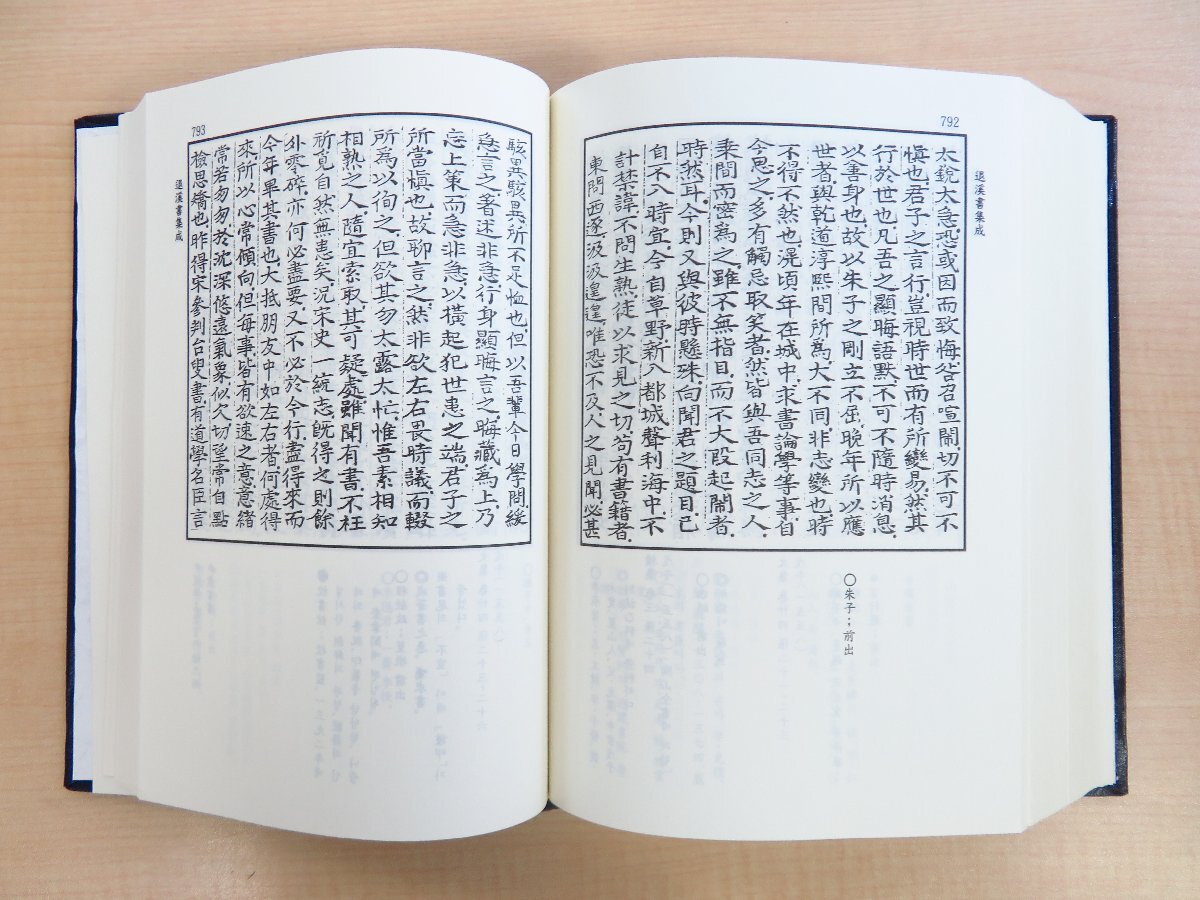 792
退溪書集成
太銳太急恐或因而致悔咎召喧鬧切不可不
愼也君子之言行豈視時世而有所變易然其
行於世也凡吾之顯晦語默不可不隨時消息
以書身也故以朱子之剛立不屈晚年所以應
世者與乾道淳熙間所爲大不同非志變也時
不得不然也滉頃年在城中求書論學等事自
今思之多有觸忌取笑者然皆與吾同志之人
乘間而密爲之雖不無指目而不大段起鬧者
時然耳今則又與彼時懸殊向聞君之題目已
自不入時宜今自草野新入都城聲利海中不
計禁諱不問生熟徒以求見之切苟有書籍者
東問西逐汲汲遑遑唯恐不及人之見聞必甚
○朱子；前出
793
退溪書集成
駭異駭異所不足恤也但以吾輩今日學問緩
急言之著述非急行身顯晦言之晦藏爲上乃
忘上策而急非急以橫起犯世患之端君子之
所當愼也故聊言之然非欲左右畏時議而輟
所爲以徇之但欲其勿太露太忙惟吾素相知
相熟之人隨宜索取其可疑處雖聞有書不枉
祈覓自然無患矣況宋史一統志旣得之則餘
外零碎亦何必盡要又不必於今行盡得來而
今年畢其書也大抵朋友中如左右者何處得
來所以心常傾向但每事皆有欲速之意意緖
常若勿勿於沈深悠遠氣象似欠切望常自點
檢思矯也昨得宋參判台叟書有道學名臣言